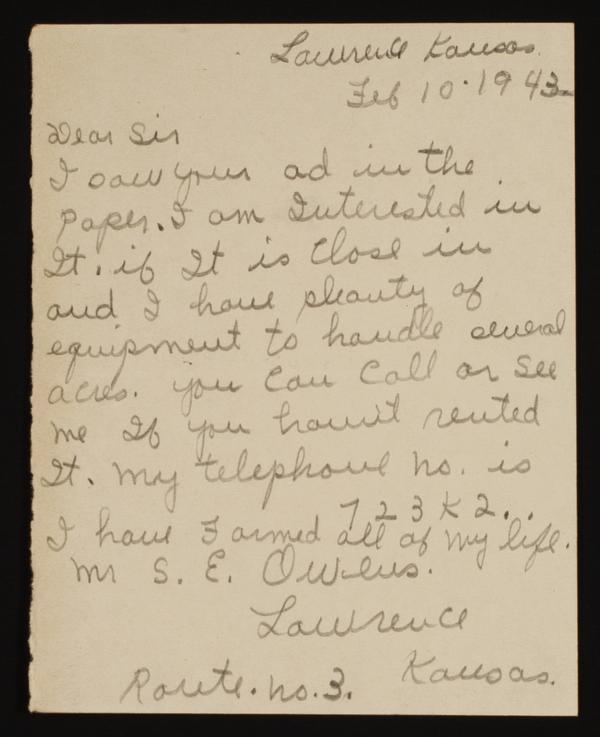 Lawrence Kansas.
Feb 10.1943
Dear Sir
I saw your ad in the
paper. I am Interested in
It. if It is Close in
and I have pleanty of
equipment to handle several
acres. you Can Call or See
me If you havn't rented
It. my telephone no. is
723K2..
I have Farmed all of my life.
Mr S. E. Owens.
Lawrence
Kansas.
Route. no. 3.